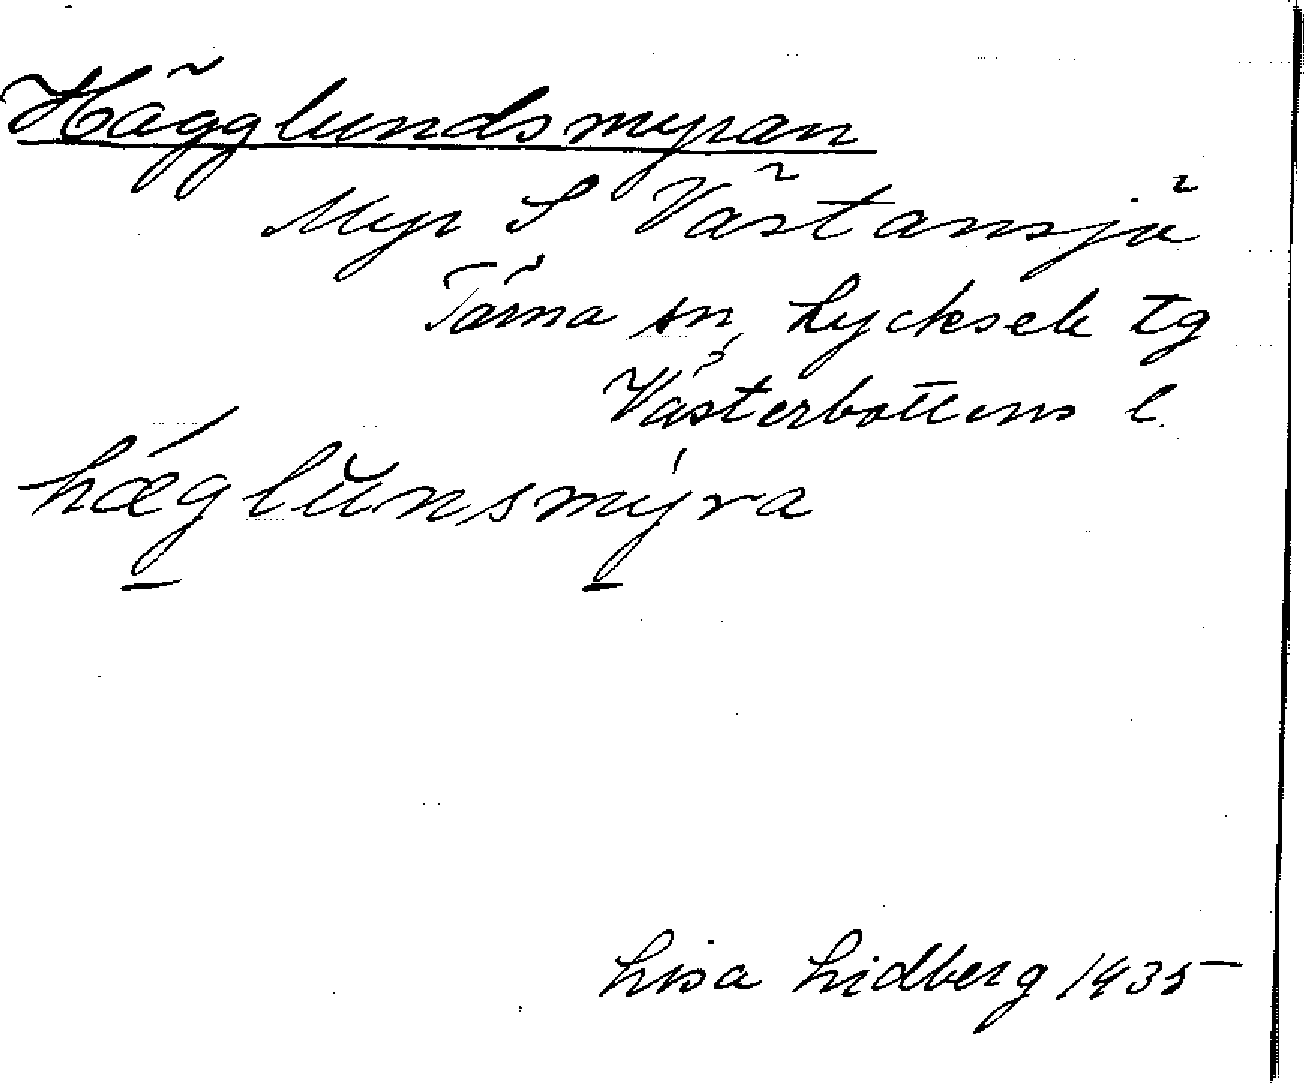 Hägglundsmyran
Myr S Västansjö
Tärna sn, Lycksele tg
Västerbottens l.
hæ̀glŭnsmýra
Lisa Lidberg 1935